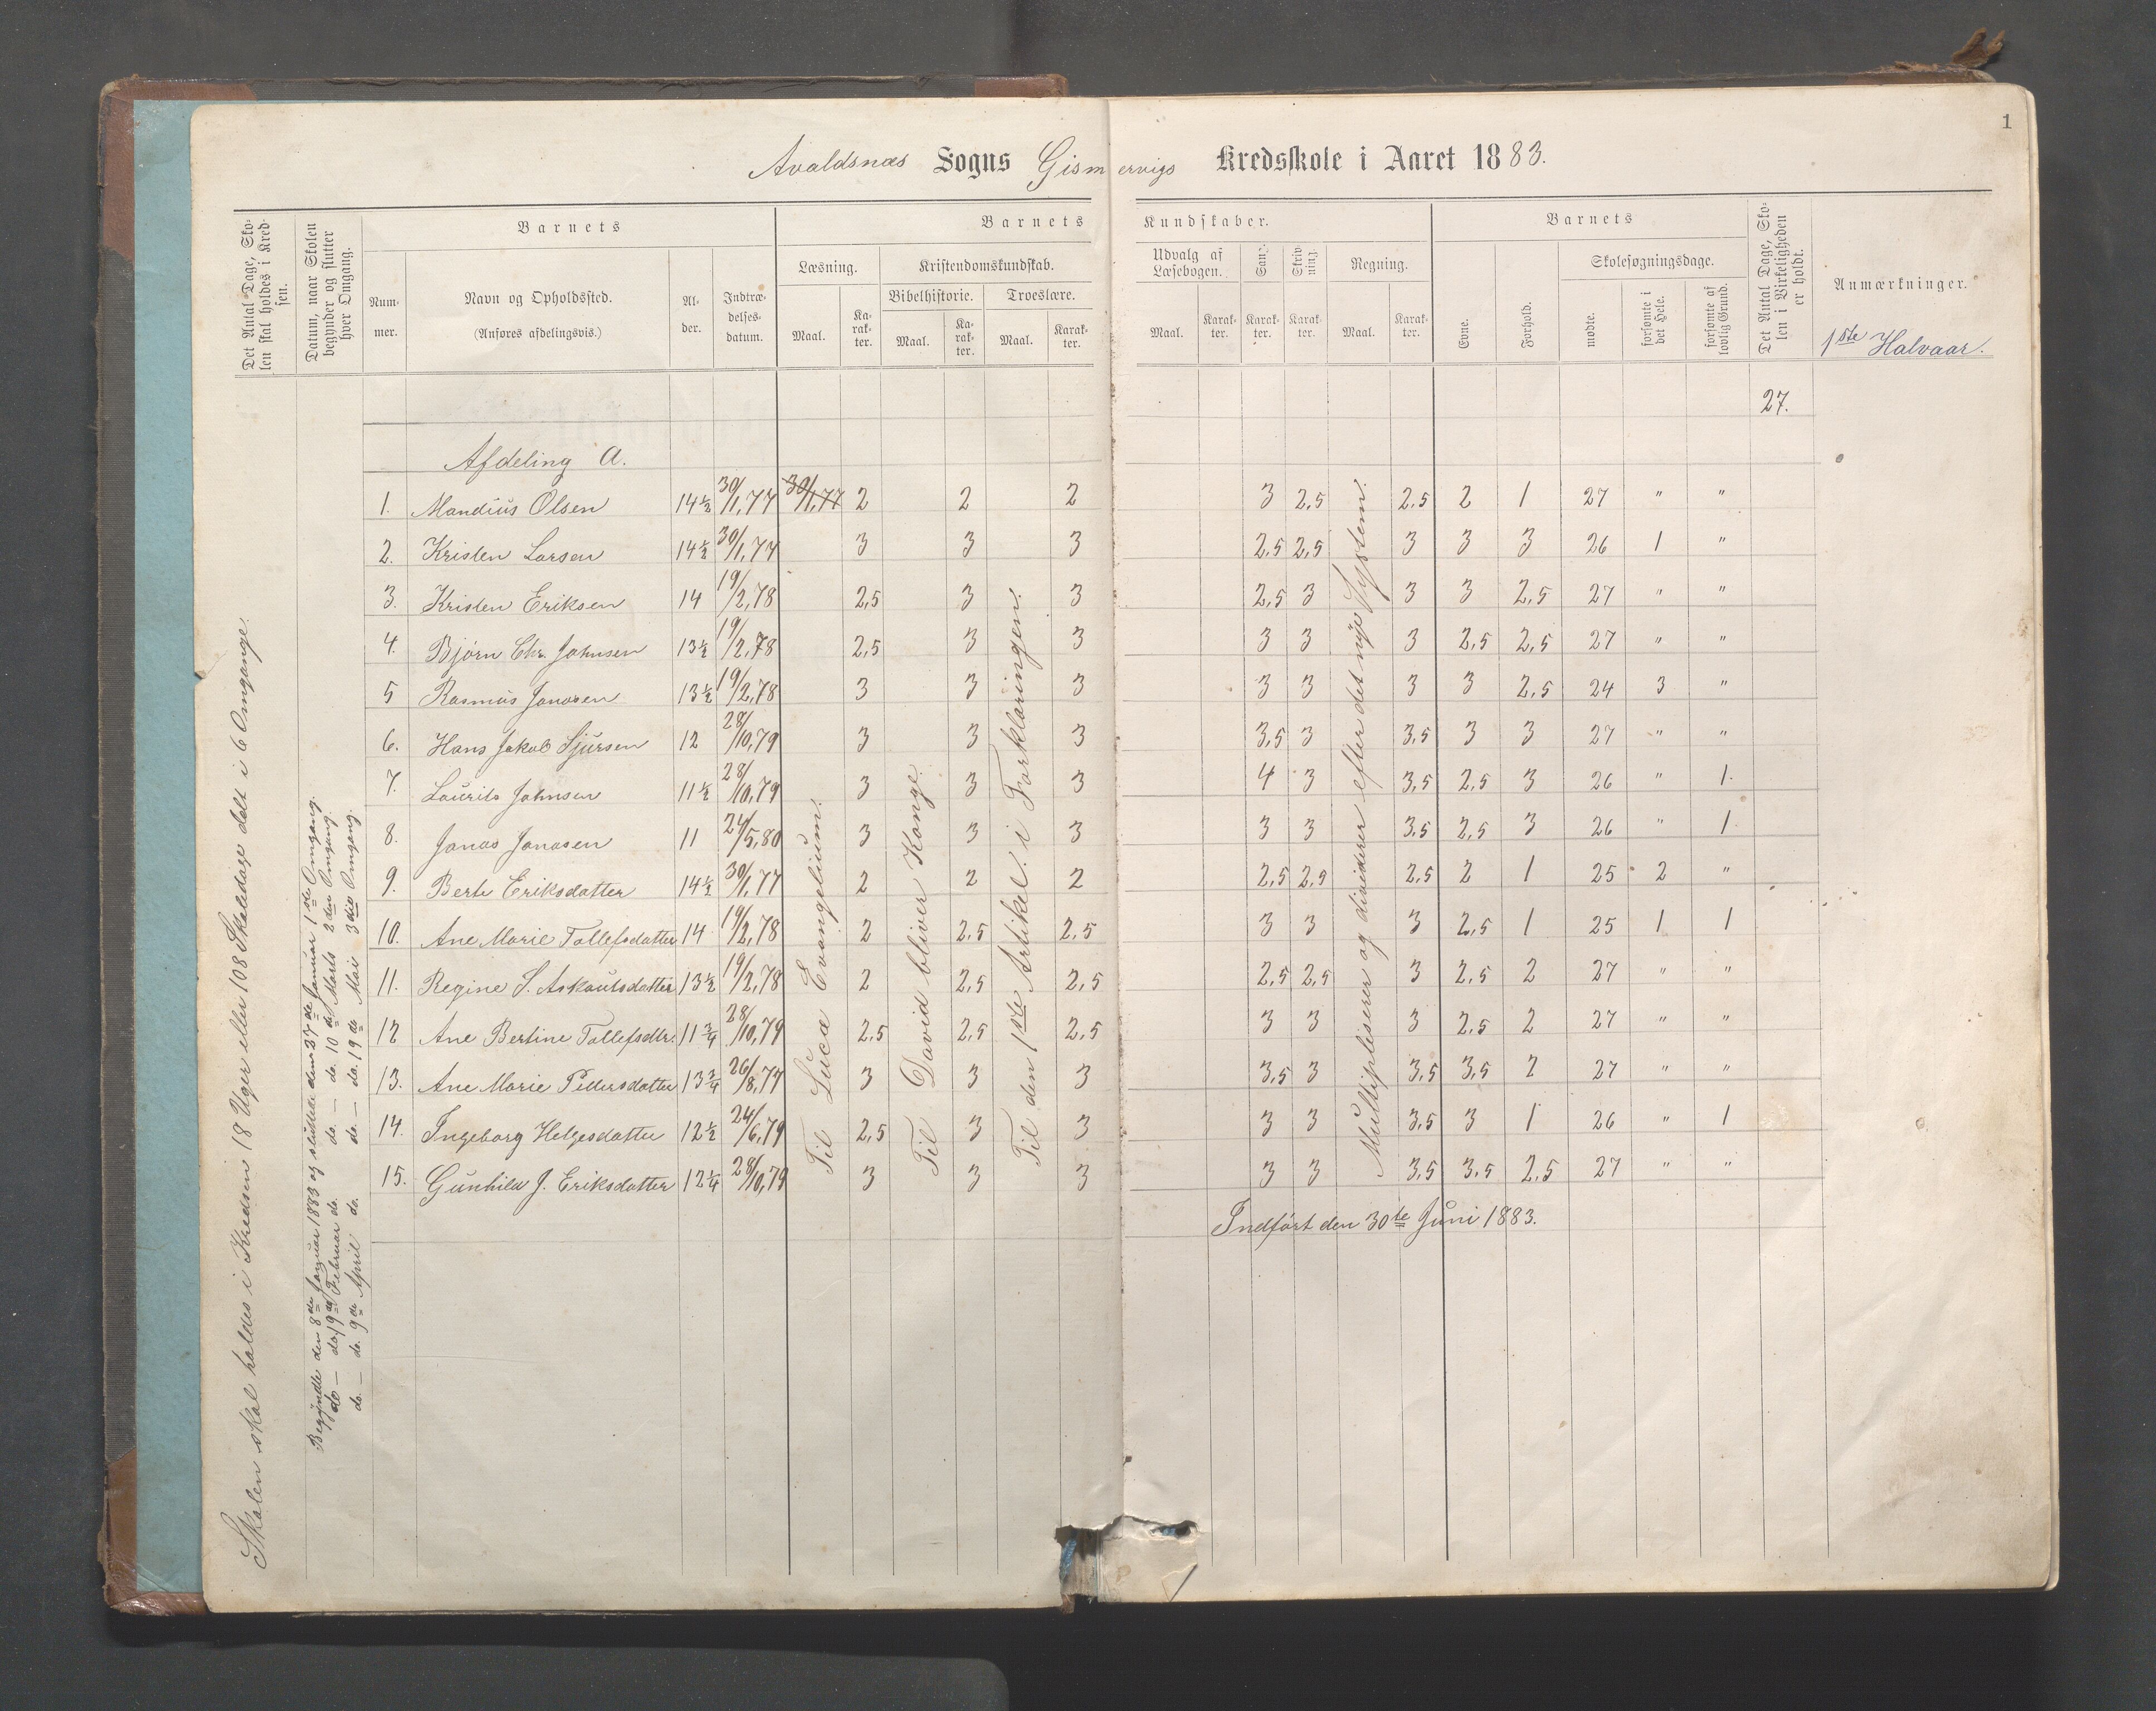 1
Avaldsnæs Sogns Gismervigs Kredsskole i Aaret 1883.
Det Antal Dage, Sko-
len skal holdes i Kred-
sen.
Datum, naar Skolen
begynder og slutter
hver Omgang.
Barnets
Num-
mer.
Navn og Opholdssted.
(Anføres afdelingsvis.)
Al-
der.
Indtræ-
delses-
datum.
Barnets Kundskaber.
Læsning.
Maal.
Ka-
rak-
ter.
Kristendomskundskab.
Bibelhistorie.
Maal.
Ka-
rak-
ter.
Troeslære.
Maal.
Karak-
ter.
Udvalg af
Læsebogen.
Maal.
Karak-
ter.
Sang.
Karak-
ter.
Skriv-
ning.
Karak-
ter.
Regning.
Maal.
Karak-
ter.
Barnets
Evne.
Forhold.
Skolesøgningsdage.
mødte.
forsømte i
det Hele.
forsømte af
lovlig Grund.
Det Antal Dage, Sko-
len i Virkeligheden
er holdt.
Anmærkninger.
1ste Halvaar.
27.
Afdeling A.
1. Mandius Olsen 14½ 30/1,77 30/1,77 2 2 2 3 2,5 2,5 2 1 27 " "
2. Kristen Larsen 14½ 30/1,77 3 3 3 2,5 2,5 3 3 3 26 1 "
3. Kristen Eriksen 14 19/2,78 2,5 3 3 2,5 3 3 3 2,5 27 " "
4. Bjørn Chr. Johnsen 13½ 19/2,78 2,5 3 3 3 3 3 2,5 2,5 27 " "
5 Rasmus Janasen 13½ 19/2,78 3 3 3 3 3 3 3 2,5 24 3 "
6. Hans Jakob Sjursen 12 28/10,79 3 3 3 3,5 3 3,5 3 3 27 " "
7. Laurits Johnsen 11½ 28/10,79 3 3 3 4 3 3,5 2,5 3 26 " 1.
8. Janas Janasen 11 24/5,80 3 3 3 3 3 3,5 2,5 3 26 " 1
9. Berte Eriksdatter 14½ 30/1,77 2 2 2 2,5 2,5 2,5 2 1 25 2 "
10. Ane Marie Tollefsdatter 14 19/2,78 2 2,5 2,5 3 3 3 2,5 1 25 1 1
11. Regine S. Askautsdatter 13½ 19/2,78 2 2,5 2,5 2,5 2,5 3 2,5 2 27 " "
12 Ane Bertine Tollefsdtr. 11¾ 28/10,79 2,5 2,5 2,5 3 3 3 2,5 2 27 " "
13. Ane Marie Pettersdatter 13¾ 26/8,77 3 3 3 3,5 3 3,5 3,5 2 27 " "
14. Ingeborg Helgesdatter 12½ 24/6,79 2,5 3 3 3 3 3,5 3 1 26 " 1
15. Gunhild J. Eriksdatter 12¼ 28/10,79 3 3 3 3 3 3,5 3,5 2,5 27 " "
Indført den 30te Juni 1883.
Skolen skal holdes i Kredsen 18 Uger eller 108 Skoledage delt i 6 Omgange.
Begyndte den 8de Januar 1883 og sluttede den 27de Januar 1ste Omgang.
do — do. 19de Februar do. do. — do. 10de Marts 2den Omgang.
do. — do. 9de April do. do. — do. 19de Mai 3die Omgang.
Til Lucæ Evangelium.
Til David bliver Konge.
Til den 1ste Artikel i Forklaringen.
Multipliserer og dividerer efter det nye System.